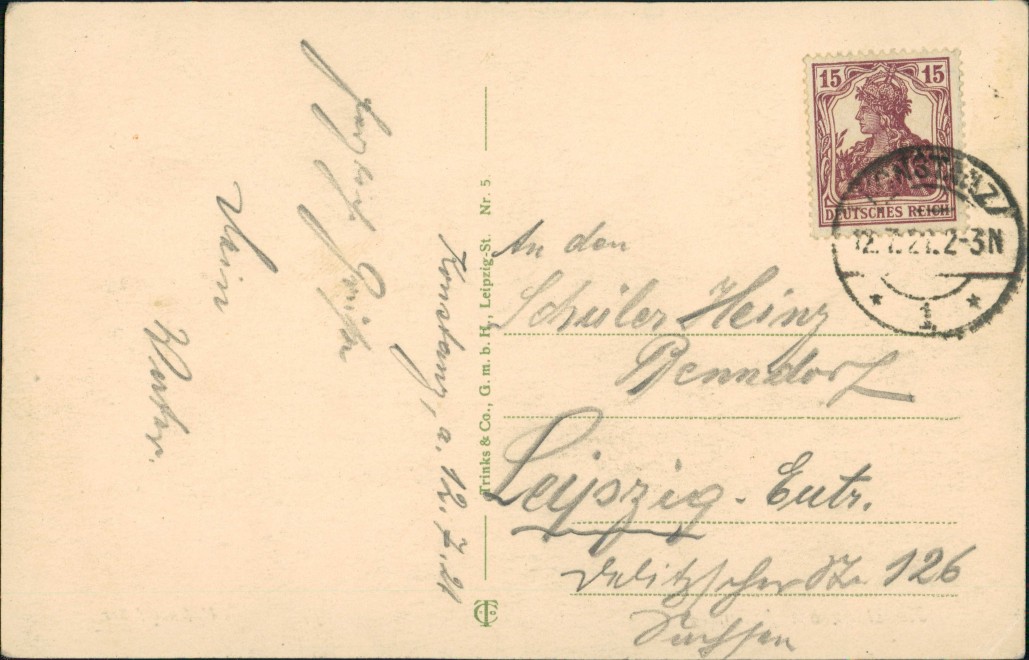 Konstanz, a. 12.7.21
Herzliche Grüße
Dein
Vater.
Trinks & Co., G. m. b. H., Leipzig-St. Nr. 5
15 15
DEUTSCHES REICH
KONSTANZ
12.7.21.2-3N
* 1 *
An den
Schüler Heinz
Benndorf
Leipzig-Eutr.
Delitzscher Str. 126
Sachsen